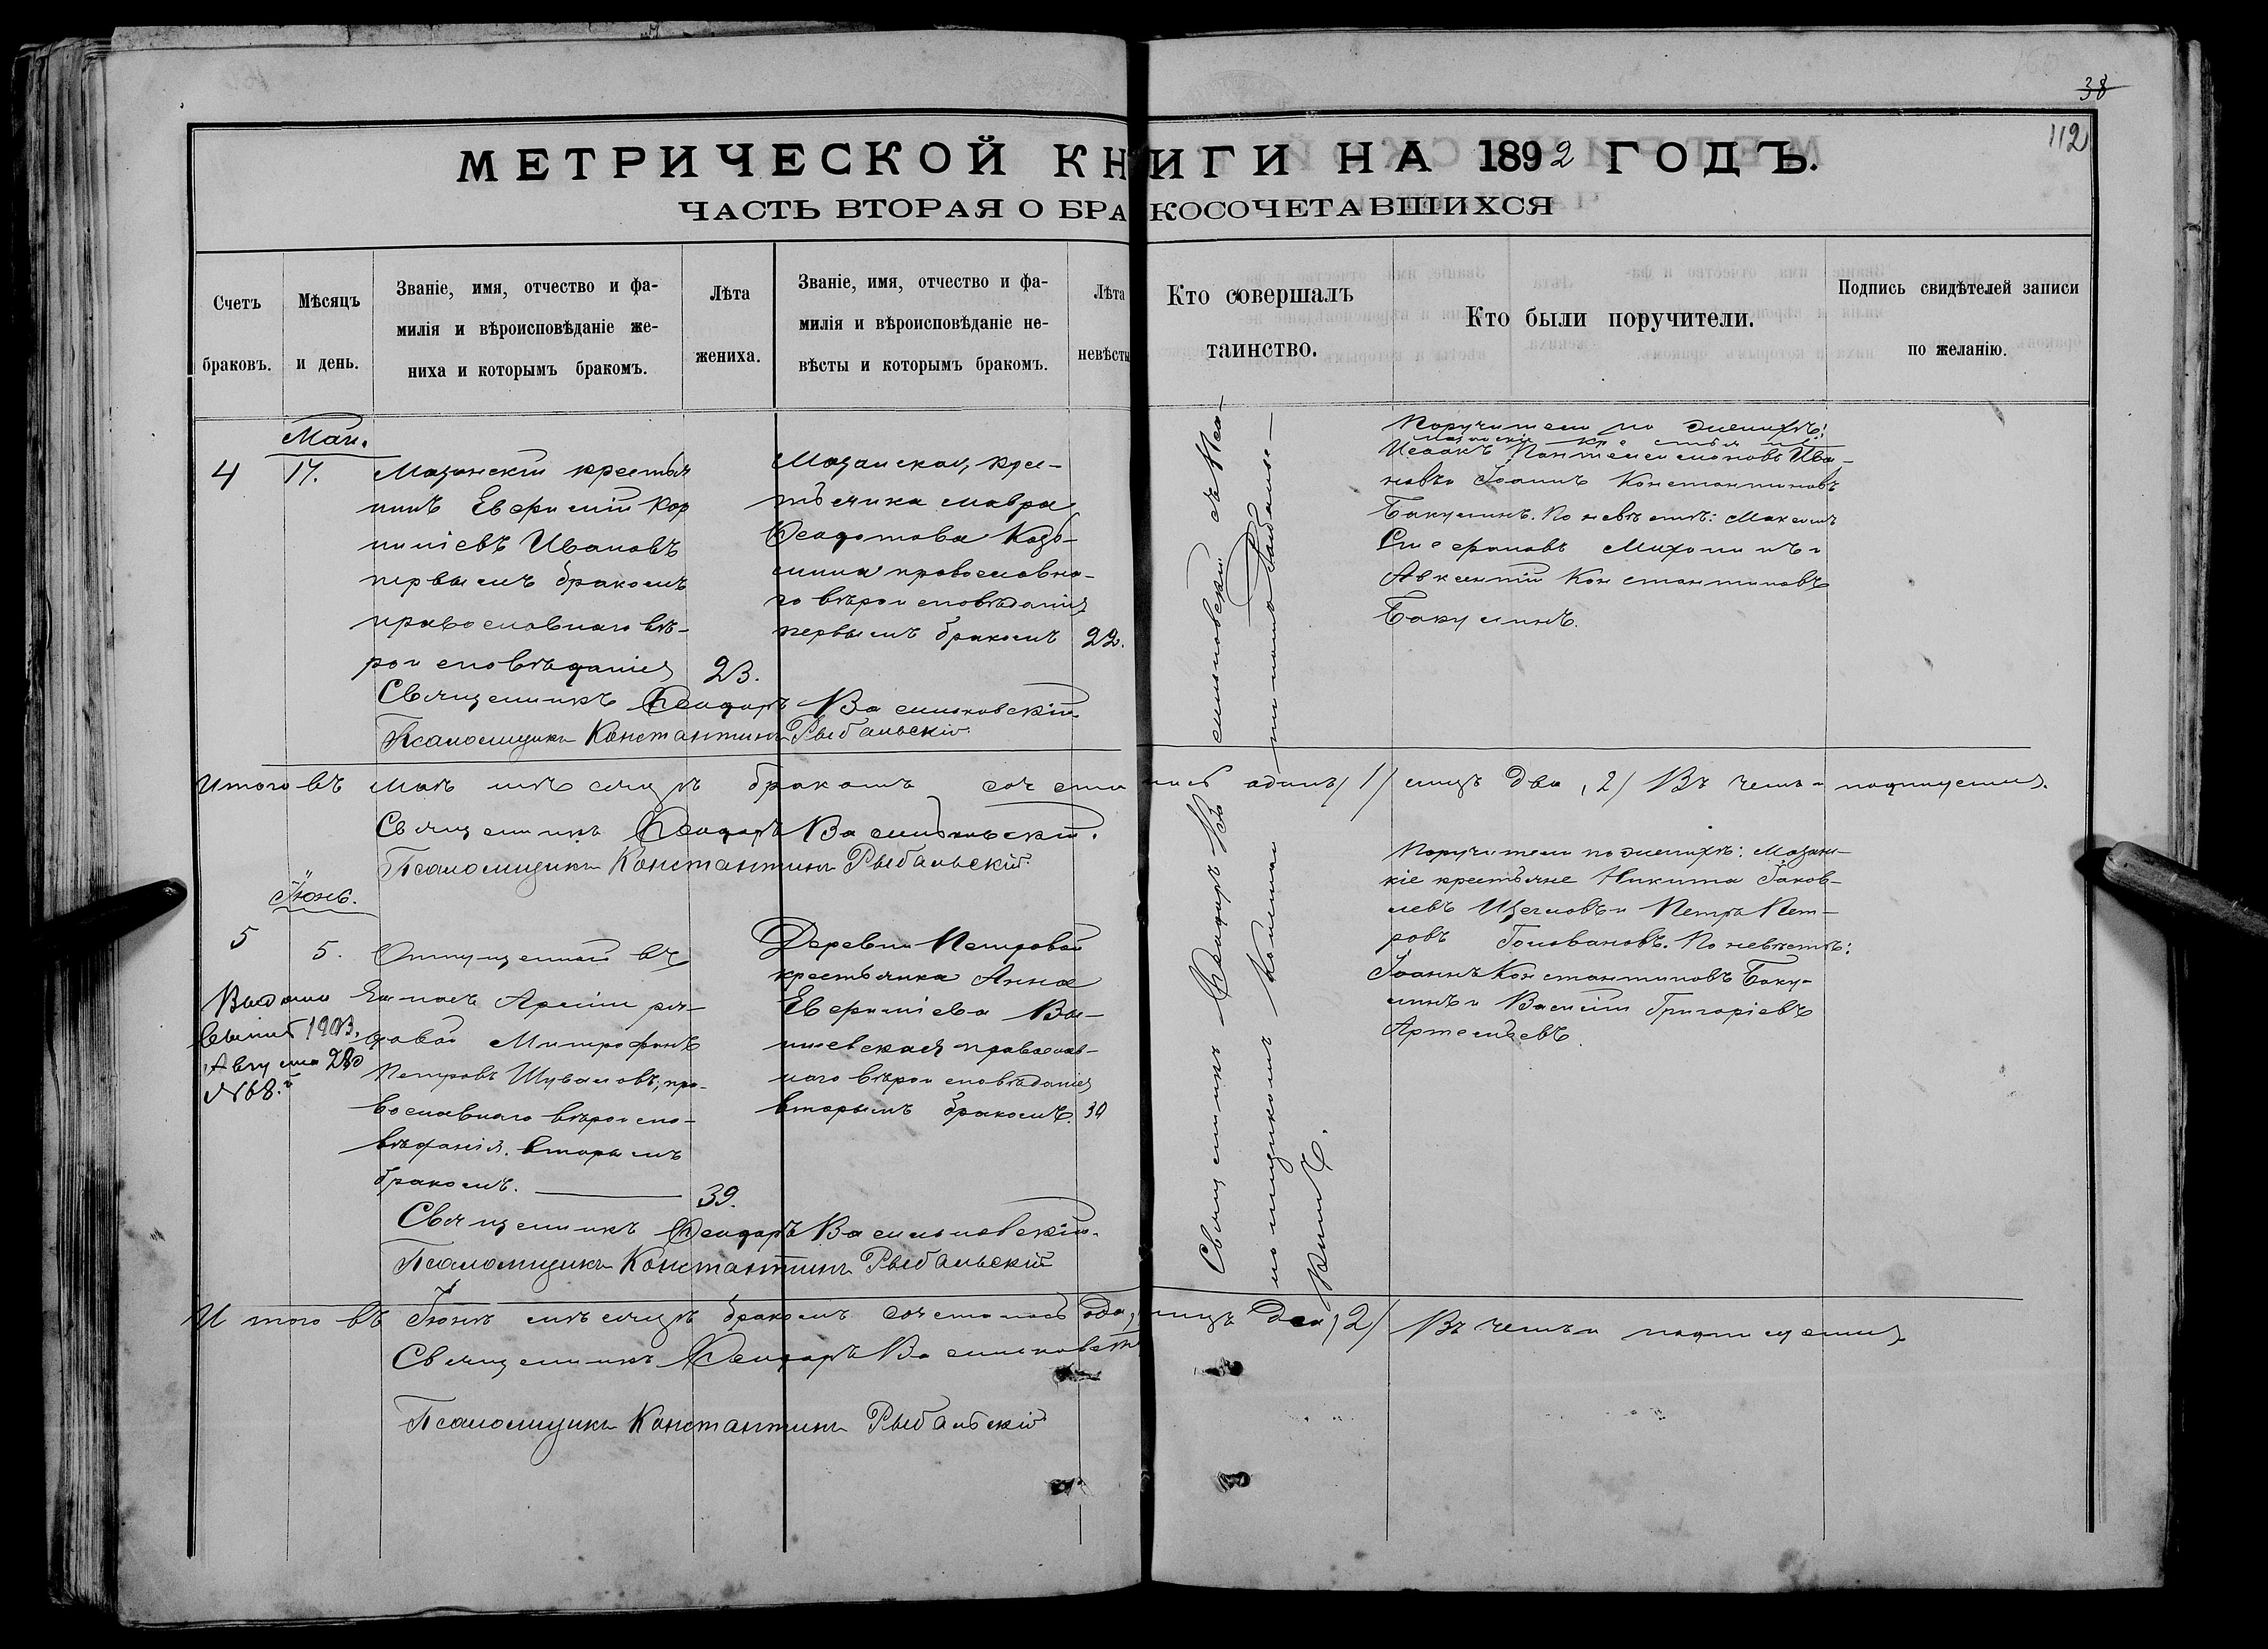 38
112
МЕТРИЧЕСКОЙ КНИГИ НА 1892 ГОДЪ.
ЧАСТЬ ВТОРАЯ О БРАКОСОЧЕТАВШИХСЯ
Счетъ браковъ.
Мѣсяцъ и день.
Званіе, имя, отчество и фа-
милія и вѣроисповѣданіе же-
ниха и которымъ бракомъ.
Лѣта жениха.
Званіе, имя, отчество и фа-
милія и вѣроисповѣданіе не-
вѣсты и которымъ бракомъ.
Лѣта невѣсты
Кто совершалъ
таинство.
Кто были поручители.
Подпись свидѣтелей записи
по желанію.
Маи.
4
17.
Мазанскій крестья
нинъ Евфимій Кор
ниліевъ Ивановъ
первымъ бракомъ
православнаго вѣ-
роисповѣданія
23.
Мазанская, крес-
тьянка Мавра
Ѳеодотова
православна-
го вѣроисповѣданія
первымъ бракомъ
22.
Поручители по женихѣ:
Исаакъ Пантелеимоновъ Ива-
новъ Іоаннъ Константиновъ
Бакулинъ. По невѣстѣ: Максимъ
Авксентій Константиновъ
Бакулинъ.
Священникъ Ѳеодоръ Васильковскій
Псаломщикъ Константинъ Рыбальскій
Итого въ маѣ мѣсяцѣ бракомъ сочетались одинъ /1/ лицъ два /2/ Въ чемъ и подпишемся.
Священникъ Ѳеодоръ Васильковскій.
Псаломщикъ Константинъ Рыбальскій
Іюнь.
5
5.
1903.
Августа
№68.
Отпущенный въ
запасъ Арміи ря-
довой Митрофанъ
Петровъ Шуваловъ, пра-
вославнаго вѣроиспо-
вѣданія. вторымъ
бракомъ.
39.
Деревни Петровой
крестьянка Анна
Евфиміева
православ-
наго вѣроисповѣданія
вторымъ бракомъ.
30
Священникъ Ѳеодоръ Васильковскій съ Пса-
ломщикомъ
Поручители по женихѣ: Мазан-
кіе крестьяне Никита Іаков-
левъ Щегловъ и Петръ Пет-
ровъ Головановъ. По невѣстѣ:
Іоаннъ Константиновъ Баку-
линъ и Василій Григоріевъ
Артемьевъ.
Священникъ Ѳеодоръ Васильковскій.
Псаломщикъ Константинъ Рыбальскій
Итого въ Іюнѣ мѣсяцѣ бракомъ сочетались лицъ два /2/ Въ чемъ и подпишемся
Священникъ Ѳеодоръ Васильковскій
Псаломщикъ Константинъ Рыбальскій